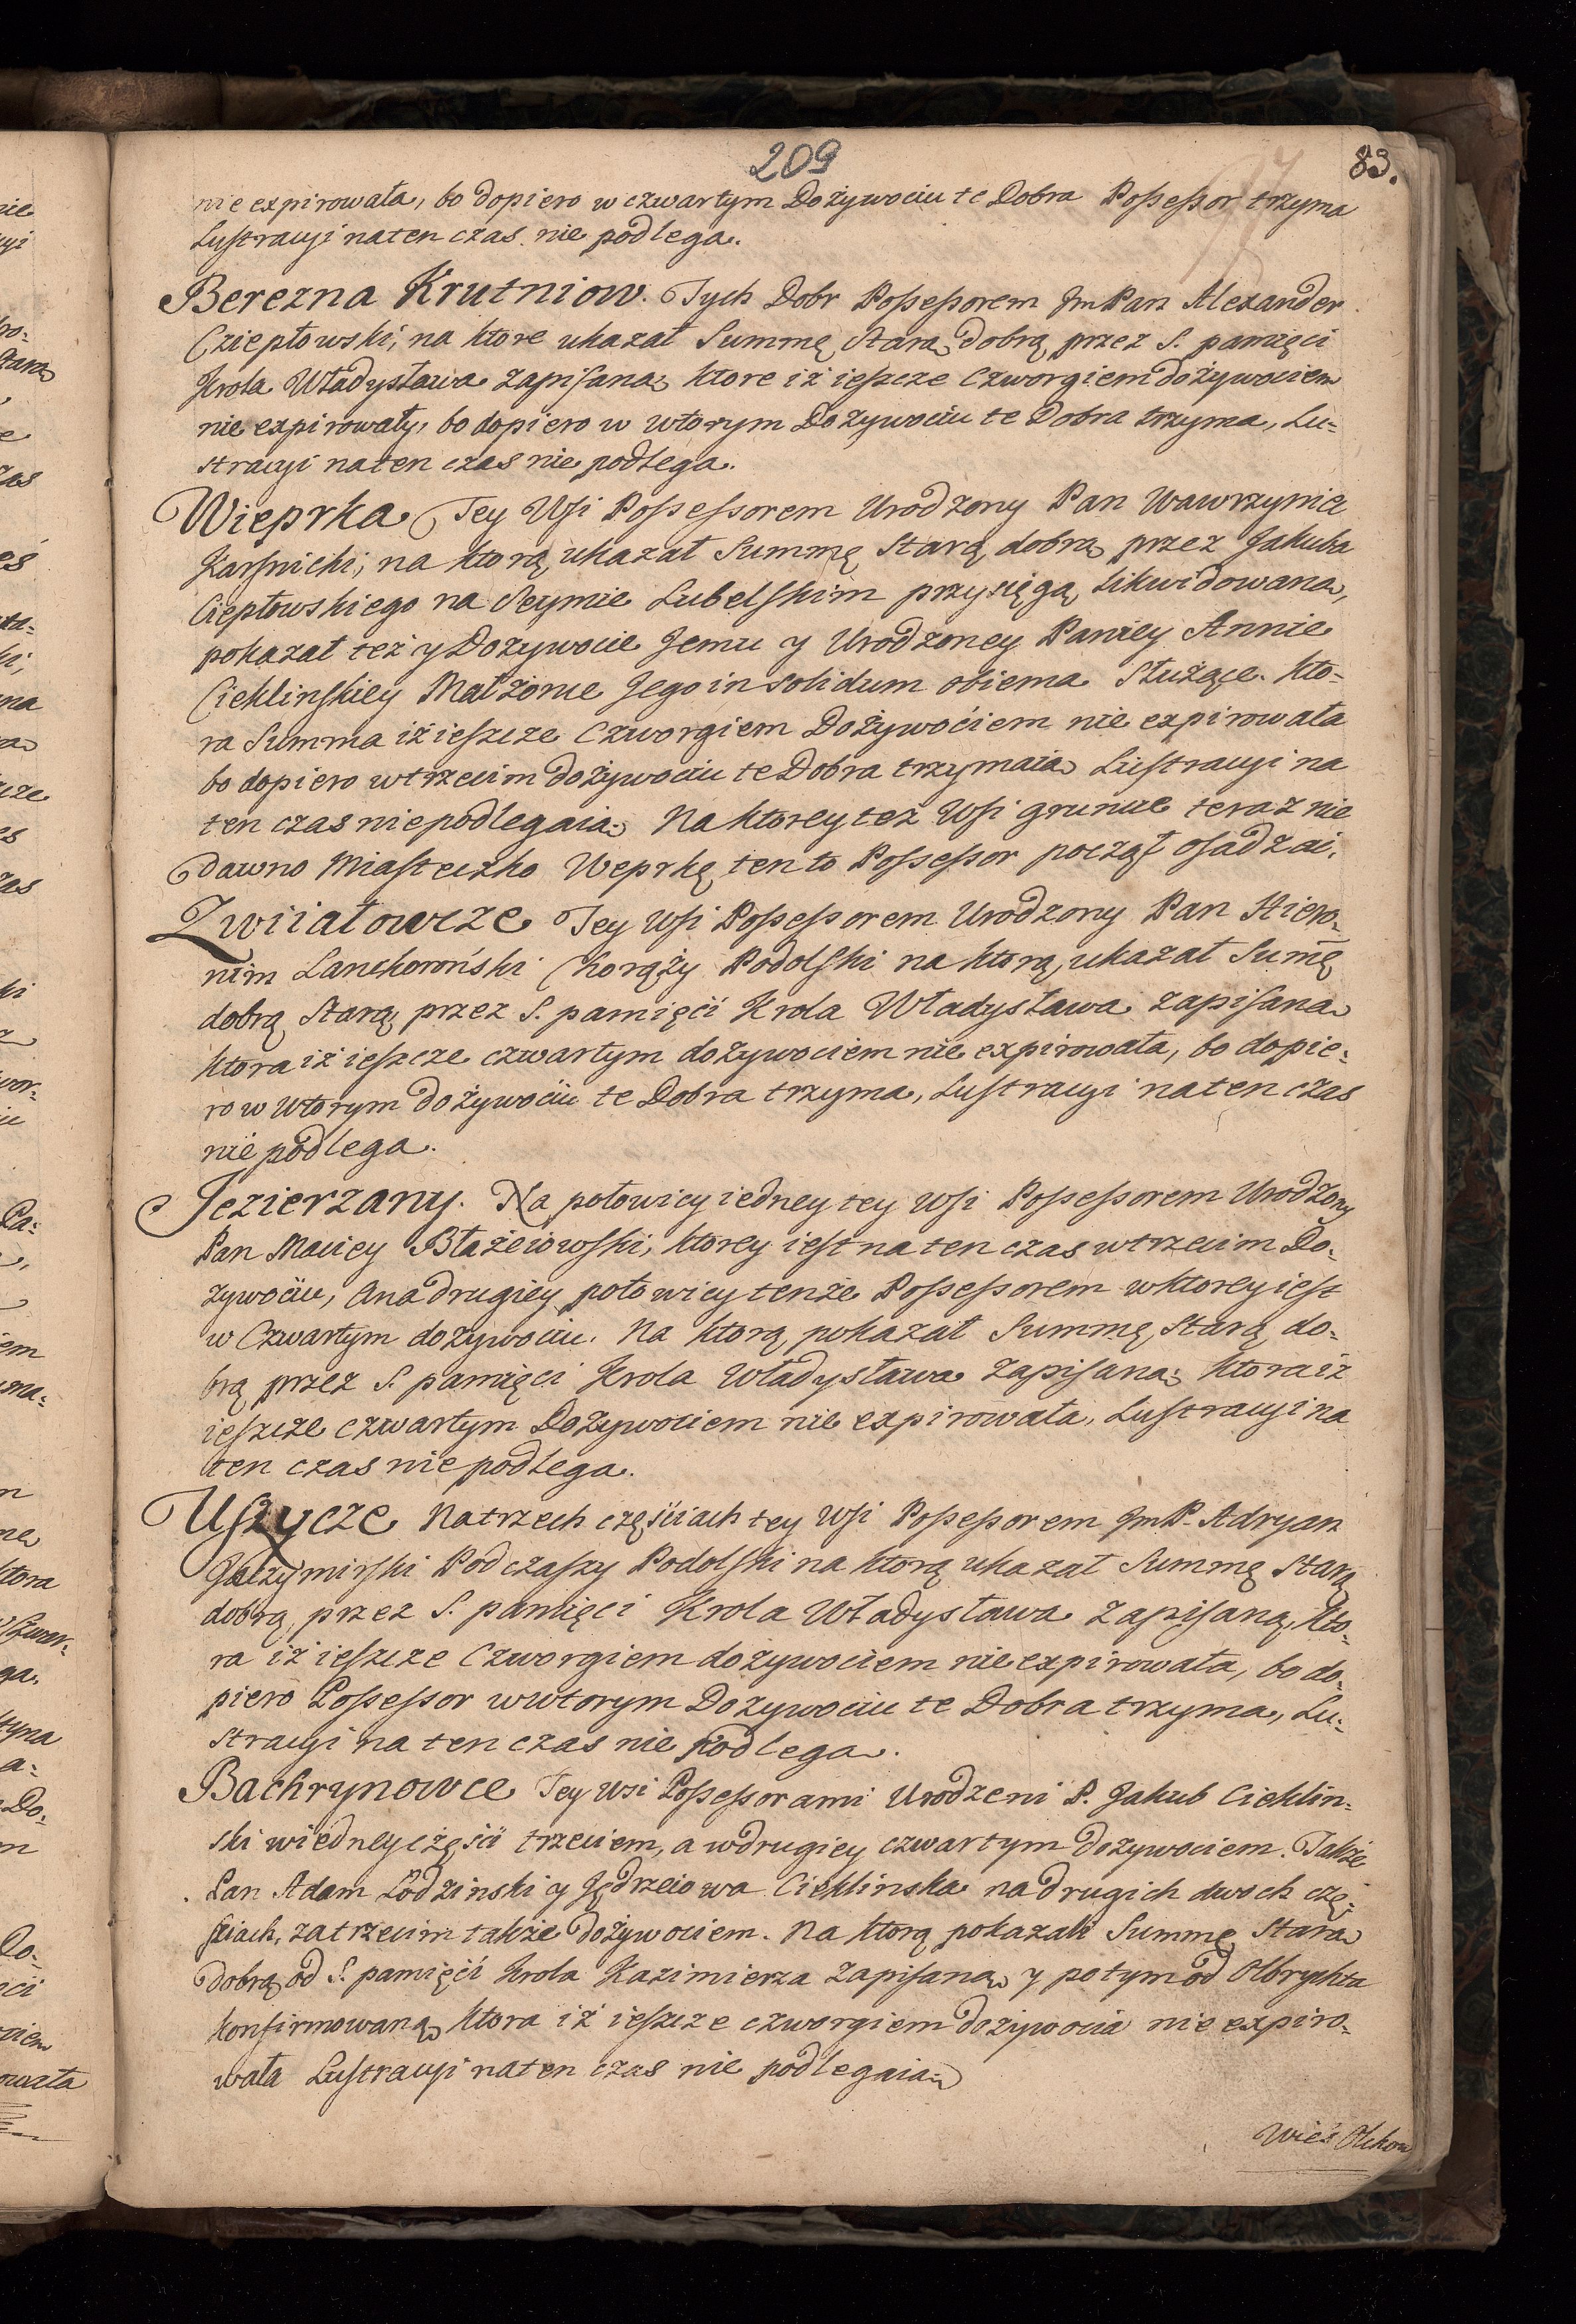 209
83.
nie expirowała, bo dopiero w czwartym Dożywociu te Dobra Possessor trzyma
Lustracyi naten czas nie podlega.
Berezna Krutniow. Tych Dobr Possessorem Jm Pan Alexander
Cziepłowski, na ktore ukazał Summę Starą Dobrą przez S. pamięci
Krola Władysława zapisaną ktore iż ieszcze Czworgiem dożywociem
nie expirowały, bo dopiero w wtorym Dożywociu te Dobra trzyma, Lu=
stracyi naten czas nie podlega.
Wieprka Tey Wsi Possessorem Urodzony Pan Wawrzyniec
Karsnicki, na ktorą ukazał Summę Starą dobrą przez Jakuba
Ciepłowskiego na Seymie Lubelskim przysięgą likwidowaną,
pokazał też y Dożywocie Jemu y Urodzoney Paniey Annie
Cieklinskiey Małżonce Jego in solidum obiema Służące. kto=
ra Summa iż ieszcze Czworgiem Dożywociem nie expirowała
bo dopiero w trzecim dożywociu te Dobra trzymaią Lustracyi na
ten czas nie podlegaią. Na ktorey też Wsi gruncie teraz nie
dawno Miasteczko Weprkę ten to Possessor począł osadzać.
Zwiiałowcze Tey Wsi Possessorem Urodzony Pan Hiero=
nim Lanckoroński Chorąży Podolski na ktorą ukazał Sum̃ę
dobrą Starą przez S. pamięci Krola Władysława zapisaną
ktora iż ieszcze czwartym dożywociem nie expirowała, bo dopie=
ro w wtorym dożywociu te Dobra trzyma, Lustracyi naten czas
nie podlega.
Jezierzany. Na połowicy iedney tey Wsi Possessorem Urodzony
Pan Maciey Błażeiowski, ktorey iest na ten czas w trzecim Do=
żywociu, Ana drugiey połowicy tenże Possessorem w ktorey iest
w Czwartym dożywociu. Na ktorą pokazał Summę Starą do=
brą przez S. pamięci Krola Władysława zapisaną ktora iż
ieszcze czwartym Dożywociem nie expirowała, Lustracyi na
ten czas nie podlega.
Uszycze Na trzech częściach tey Wsi Possessorem Jm P. Adryan
Podczaszy Podolski na ktorą ukazał Summę Starą
dobrą przez S. pamięci Krola Władysława zapisaną, kto=
ra iż ieszcze Czworgiem dożywociem nie expirowała, bo do=
piero Possessor w wtorym Dożywociu te Dobra trzyma, Lu=
stracyi na ten czas nie podlega.
Bachrynowce Tey Wsi Possessorami Urodzeni P. Jakub Cieklin=
ski w iedney części trzeciem, a w drugiey czwartym dożywociem. Także
Pan Adam Lodzinski y Jędrzeiowa Cieklinska na drugich dwoch czę=
ściach, za trzecim także dożywociem. Na ktorą pokazali Summę Starą
Dobrą od S. pamięci Krola Kazimierza zapisaną y potym od Olbrychta
konfirmowaną ktora iż ieszcze czworgiem dożywocia nie expiro=
wała Lustracyi naten czas nie podlegaią
Wieś